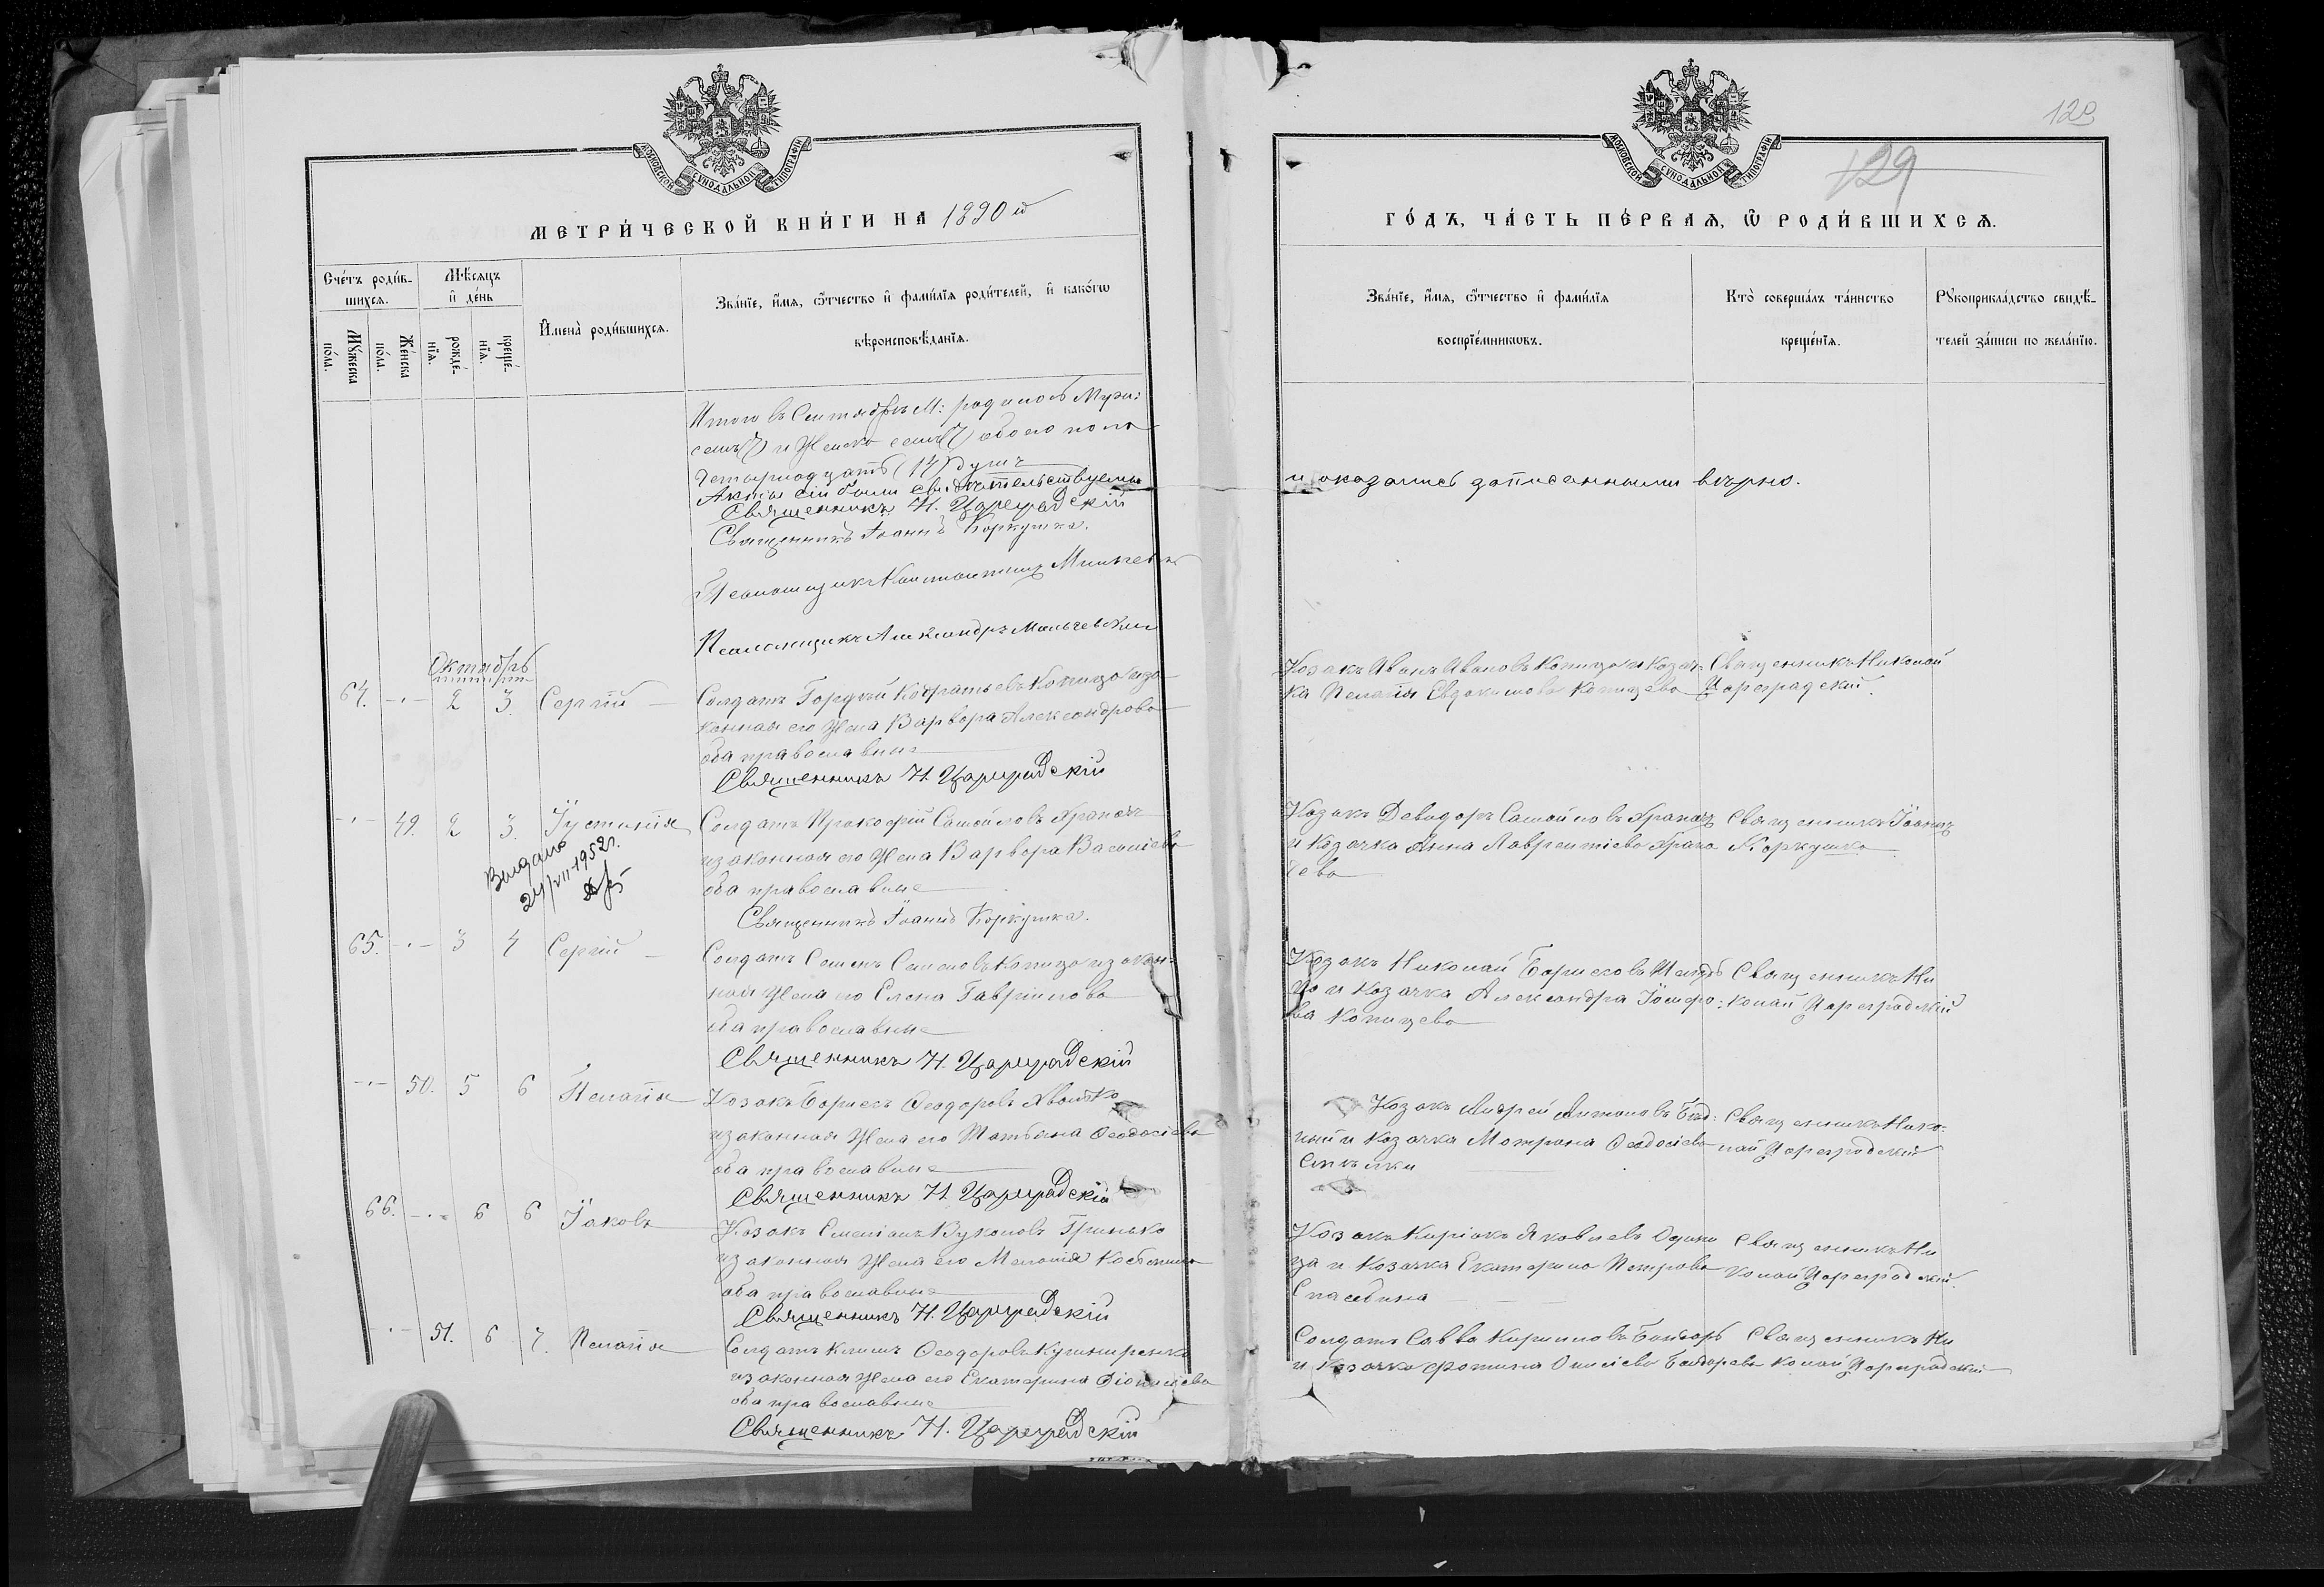 МОСКОВСКОЙ СѴНОДАЛЬНОЙ ТИПОГРАФІИ
МЕТРИ́ЧЕСКОЙ КНИ́ГИ НА 1890 й
Сче́тъ роди́в-
шихсѧ.
Мѣ́сѧцъ
и҆ де́нь
Мꙋ́жеска по́ла.
Же́нска по́ла.
рожде́-
нїѧ.
креще́-
нїѧ.
И҆мена̀ роди́вшихсѧ.
Зва́нїе, и҆́мѧ, ѻ҆́тчество и҆ фами́лїѧ роди́телей, и҆ како́гѡ
вѣроисповѣ́данїѧ.
Итого въ Сентябрѣ М: родилось Муж:
семь (7) и Женска семь (7) обоего пола
четырнадцать (14) душъ
Акты сіи были свидѣтельствуемы
Священникъ Н. Цареградскій
Священникъ Іоаннъ Коркушка.
Псаломщикъ Константинъ
Псаломщикъ Александръ
Октябрь
64. -·- 2 3. Сергій
Солдатъ Гордѣй Кодратьевъ Копица и за-
конная его Жена Варвора Александрова
оба православные
Священникъ Н. Цареградскій
-·- 49. 2 3. Іустинія
Солдатъ Прокофій Самойловъ Храпачъ
и законная его Жена Варвора Василіева
оба православные
Священникъ Іоаннъ Коркушка.
Выдано
24/VII-1952г.
65. -·- 3 4 Сергій
Солдатъ Семенъ Семеновъ Копица и закон-
ная Жена его Елена Гавріилова
оба православные
Священникъ Н. Цареградскій
-·- 50. 5 6 Пелагія
Козакъ Борисъ Ѳеодоровъ
и законная Жена его Татьяна Ѳеодосіева
оба православные
Священникъ Н. Цареградскій
66. -·- 6 6 Іаковъ
Козакъ Емеліанъ Вуколовъ Гринько
и законная Жена его Меланія
оба православные
Священникъ Н. Цареградскій
-·- 51. 6 7. Пелагія
Солдатъ Климъ Ѳеодоровъ Кушниренко
и законная Жена его Екатерина Діонисіева
оба православные
Священникъ Н. Цареградскій
129
129
МОСКОВСКОЙ СѴНОДАЛЬНОЙ ТИПОГРАФІИ
ГО́ДЪ, ЧА́СТЬ ПЕ́РВАѦ, Ѡ҆ РОДИ́ВШИХСѦ.
Зва́нїе, и҆́мѧ, ѻ҆́тчество и҆ фами́лїѧ
воспрїе́мникѡвъ.
Кто̀ соверша́лъ та́инство
креще́нїѧ.
Рꙋкоприкла́дство свидѣ́-
телей за́писи по жела́нїю.
и оказались записанными вѣрно.
Козакъ Иванъ Ивановъ Копица и Козач-
ка Пелагія Евдокимова Копицева
Священникъ Николай
Цареградскій.
Козакъ Ѳеводоръ Самойловъ Храпачъ
и Козачка Анна Лаврентіева Храпа
чева
Священникъ Іоаннъ
Коркушка
Козакъ Николай Борисовъ
и Козачка Александра Іосифо-
ва Копицева
Священникъ Ни
колай Цареградскій
Козакъ Андрей Антоновъ Бѣд-
ный и Козачка Матрона Ѳеодосіева
Священникъ Нико-
лай Цареградскій
Козакъ Киріакъ Яковлевъ Одини
ца и Козачка Екатерина Петрова
Священникъ Ни
колай Цареградскій
Солдатъ Савва Кириловъ
и Козачка Фотина
Священникъ Ни
колай Цареградскій